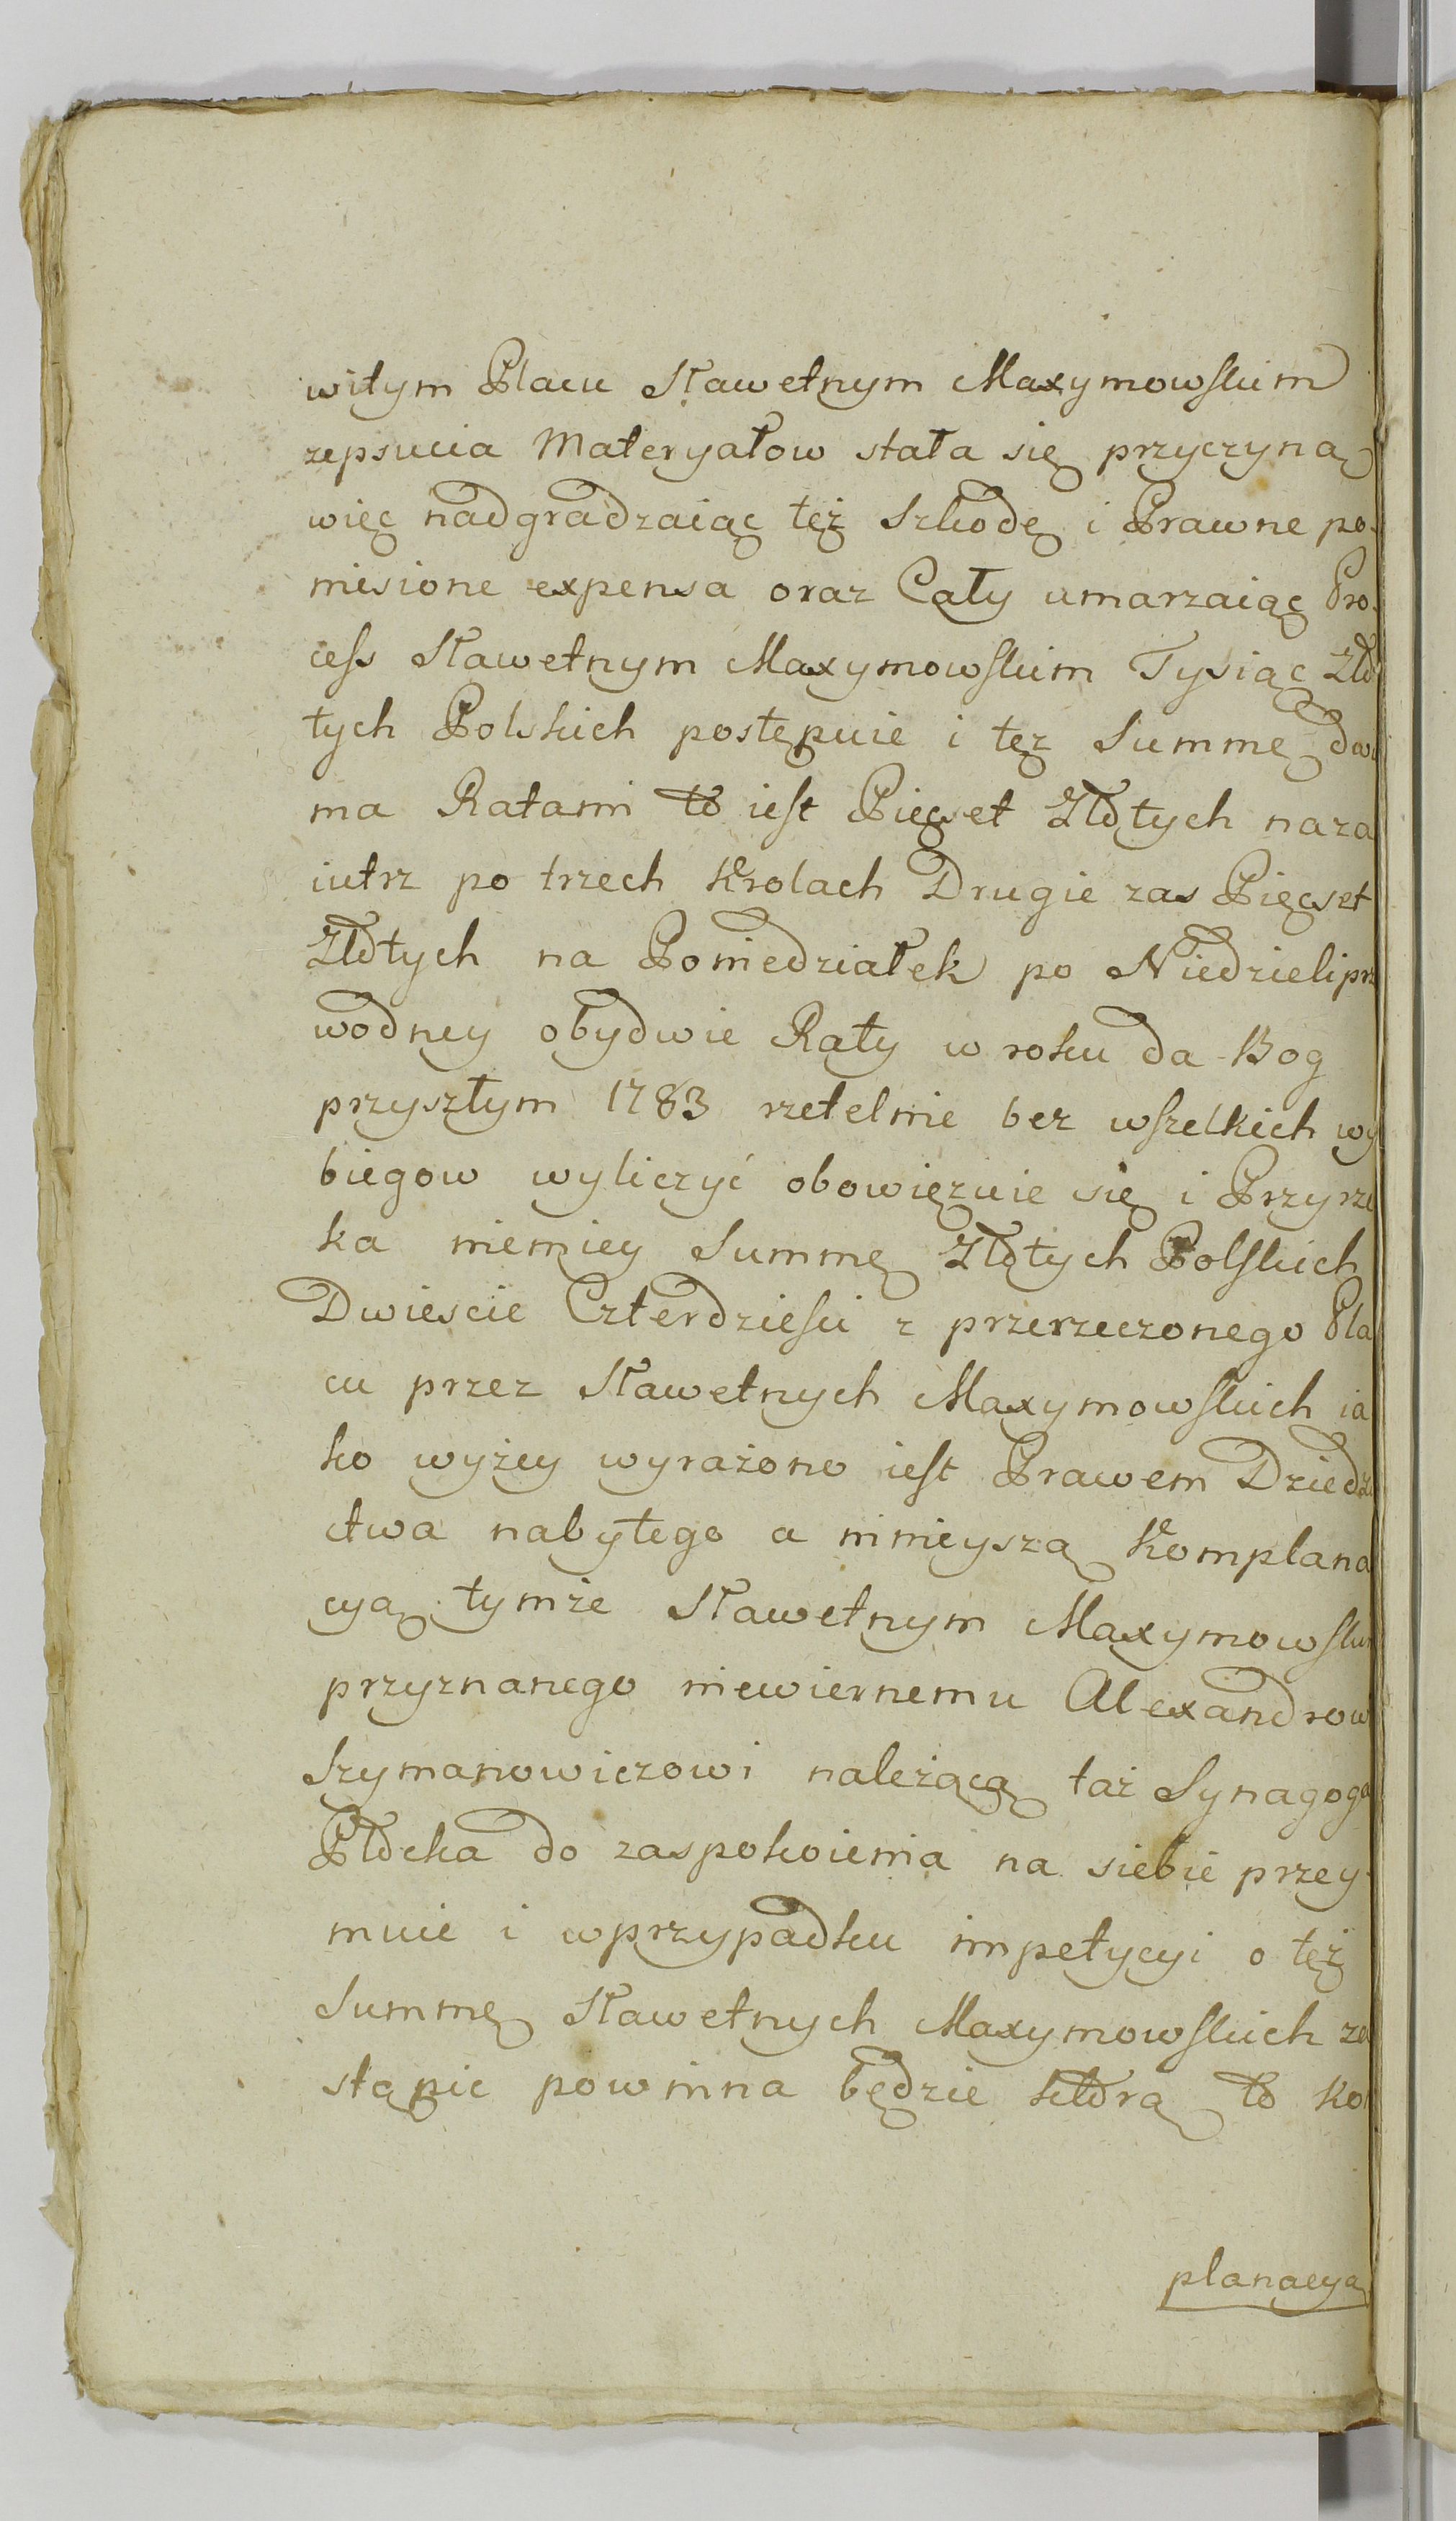 witym Placu Sławetnym Maxymowskim
zepsucia Materyałow stała się przyczyną
więc nadgradzaiąc też Szkodę i Prawne po-
niesione expensa oraz Cały umarzaiąc Pro-
cess Sławetnym Maxymowskim Tysiąc Zło
tych Polskich postępuie i tęz Summę dwu
ma Ratami to iest Pięcset Złotych naza
iutrz po trzech Krolach Drugie zas Pięcset
Złotych na Poniedziałek po Niedzieli prze
wodney obydwie Raty w roku da Bog
przyszłym 1783 rzetelnie bez wszelkich wy
biegow wyliczyć obowięzuie się i Przyrze
ka niemniey Summę Złotych Polskich
Dwiescie Czterdziesci z przerzeczonego Pla
cu przez Sławetnych Maxymowskich ia
ko wyżey wyrażono iest Prawem Dziedzi
ctwa nabytego a ninieyszą Komplana
cyą tymże Sławetnym Maxymowskim
przyznanego niewiernemu Alexandrow
Szymanowiczowi należącą taż Synagoga
Płocka do zaspokoienia na siebie przey-
muie i wprzypadku impetycyi o też
Summę Sławetnych Maxymowskich za
stąpic powinna będzie którą to Kom
planacya